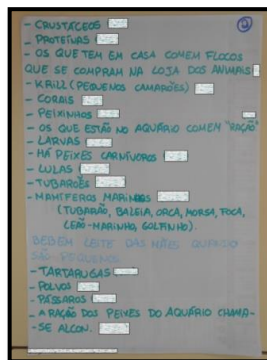 ②
- CRUSTÁCEOS
- PROTEÍNAS
- OS QUE TEM EM CASA COMEM FLOCOS
QUE SE COMPRAM NA LOJA DOS ANIMAIS
- KRILL (PEQUENOS CAMARÕES)
- CORAIS
- PEIXINHOS
- OS QUE ESTÃO NO AQUÁRIO COMEM "RAÇÃO"
- LARVAS
- HÁ PEIXES CARNÍVOROS
- LULAS
- TUBARÕES
- MAMÍFEROS MARINHOS
(TUBARÃO, BALEIA, ORCA, MORSA, FOCA,
LEÃO-MARINHO, GOLFINHO).
BEBEM LEITE DAS MÃES QUANDO
SÃO PEQUENOS
- TARTARUGAS
- POLVOS
- PÁSSAROS
- A RAÇÃO DOS PEIXES DO AQUÁRIO CHAMA-
-SE ALCON.